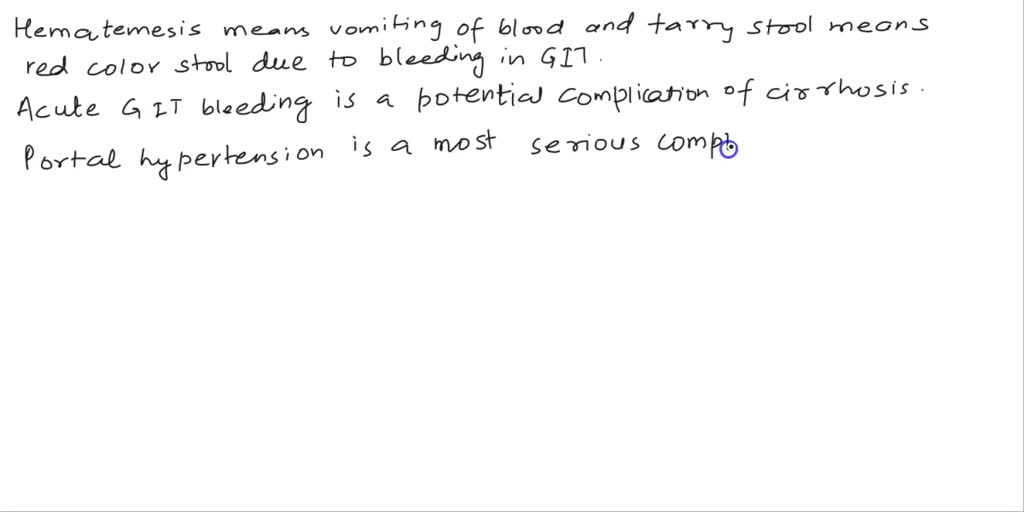 Hematemesis means vomiting of blood and tarry stool means
red color stool due to bleeding in GIT.
Acute GIT bleeding is a potential complication of cirrhosis.
Portal hypertension is a most serious comp